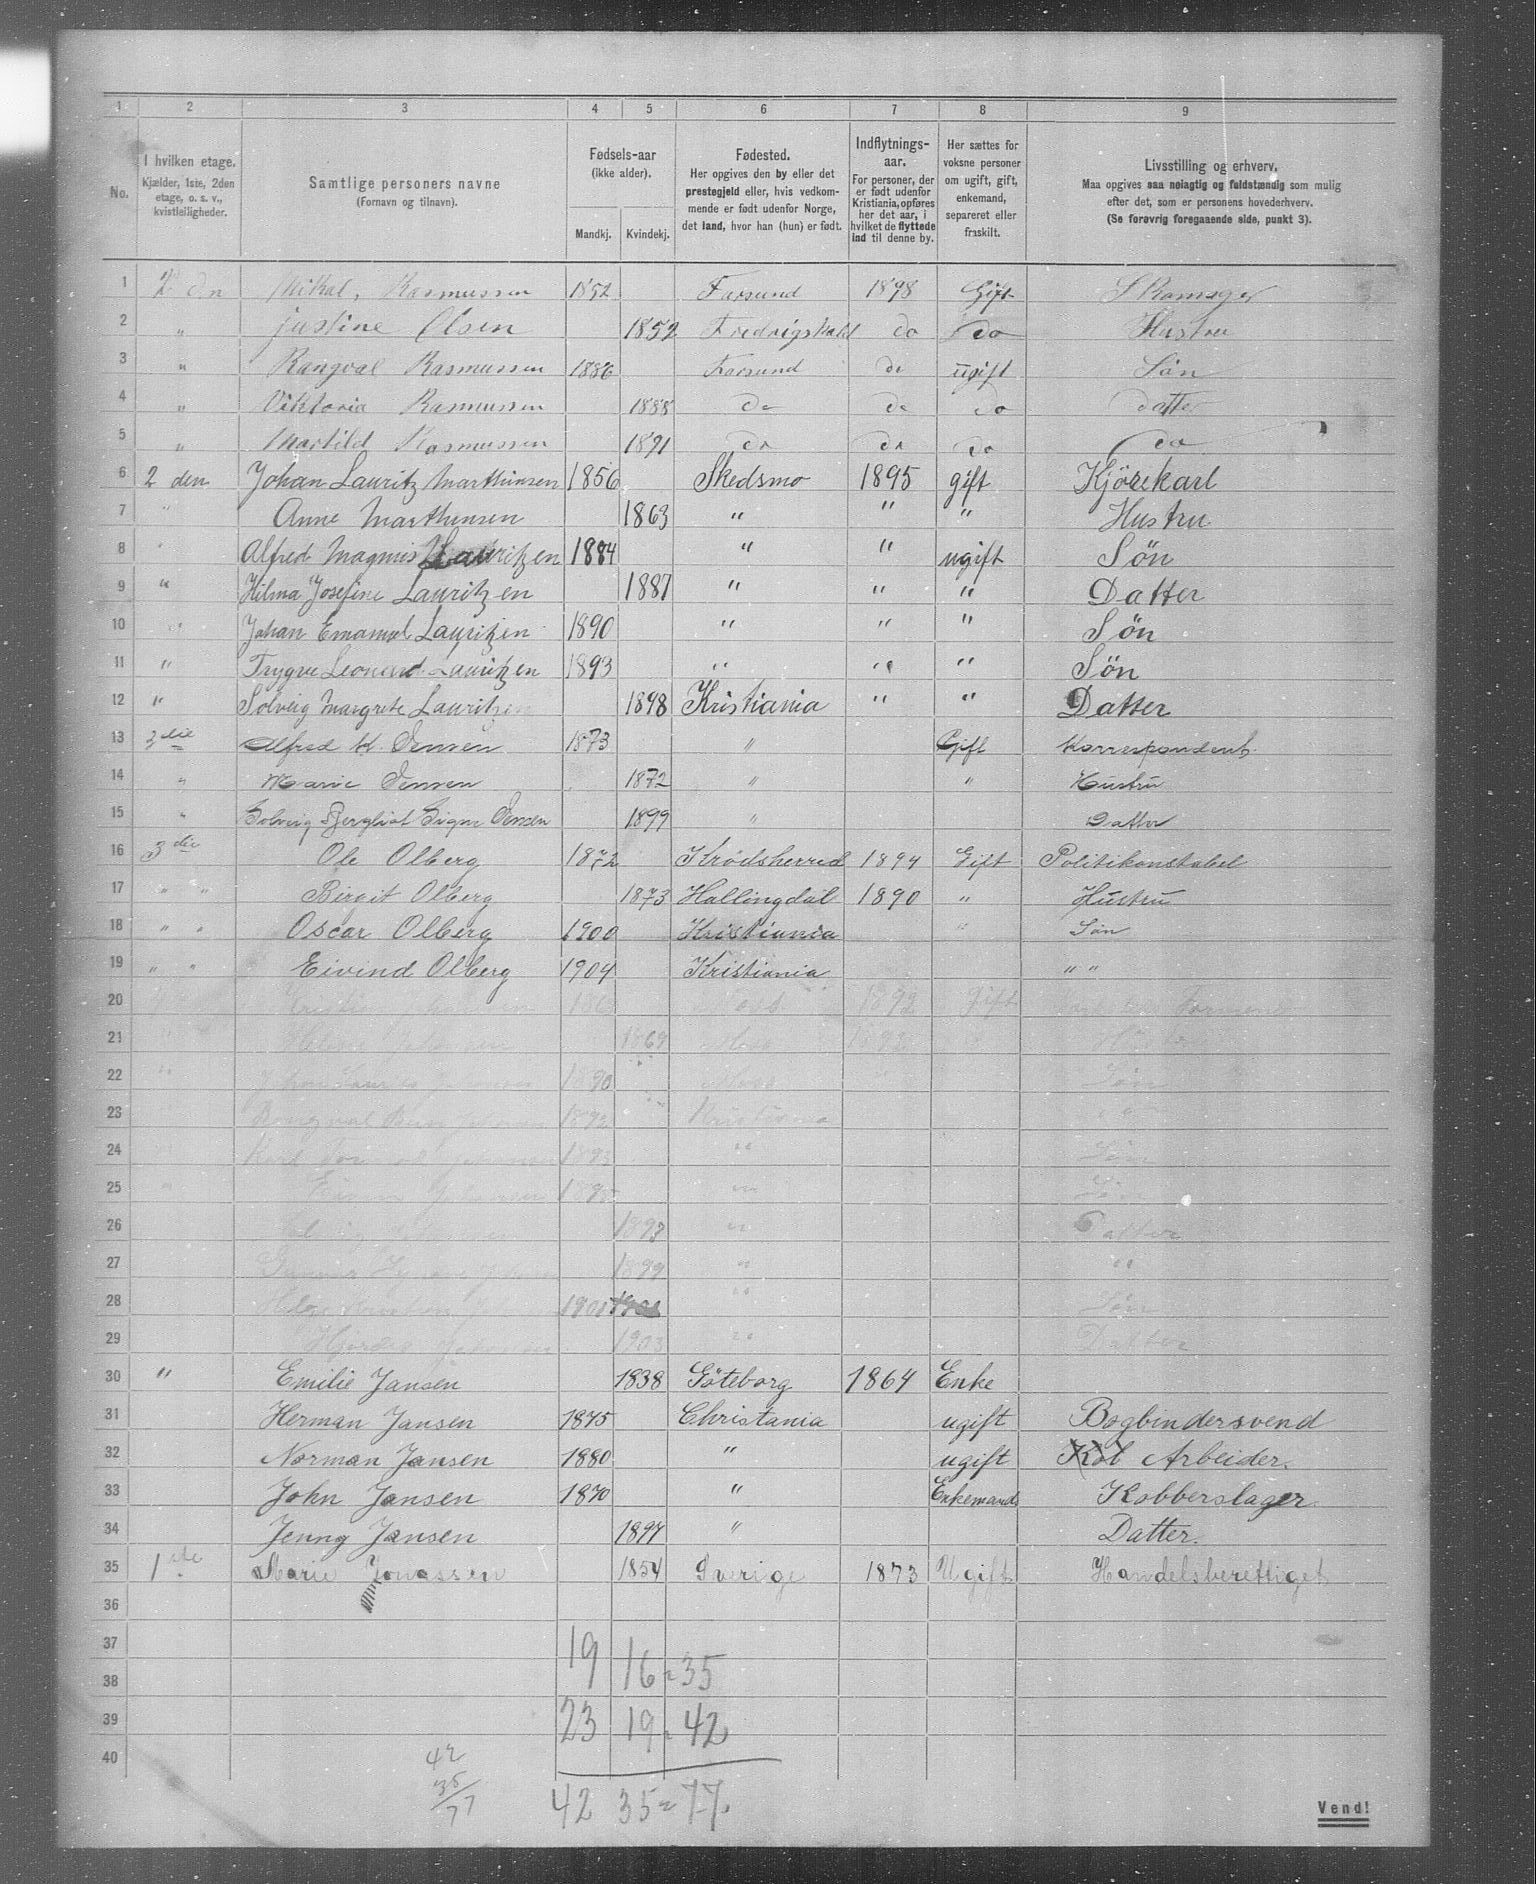 1 2 3 4 5 6 7 8 9
No.
I hvilken etage.
Kjælder, 1ste, 2den
etage, o. s. v.,
kvistleiligheder.
Samtlige personers navne
(Fornavn og tilnavn).
Fødsels-aar
(ikke alder).
Mandkj. Kvindekj.
Fødested.
Her opgives den by eller det
prestegjeld eller, hvis vedkom-
mende er født udenfor Norge,
det land, hvor han (hun) er født.
Indflytnings-
aar.
For personer, der
er født udenfor
Kristiania, opføres
her det aar, i
hvilket de flyttede
ind til denne by.
Her sættes for
voksne personer
om ugift, gift,
enkemand,
separeret eller
fraskilt.
Livsstilling og erhverv.
Maa opgives saa nøiagtig og fuldstændig som mulig
efter det, som er personens hovederhverv.
(Se forøvrig foregaaende side, punkt 3).
1 2 den Mikal, Rasmussen 1852 Farsund 1898 Gift Skomager
2 " Justine Olsen 1852 Fredrigshald do do Hustru
3 " Rangval Rasmussen 1886 Farsund do ugift Søn
4 " Viktoria Rasmussen 1888 do do do datter
5 " Rasmussen 1891 do do do do
6 2 den Johan Lauritz Marthinsen 1856 Skedsmo 1895 gift Kjörekarl
7 " Anne Marthinsen 1863 " " " Hustru
8 " Alfred Magnus Lauritzen 1884 " " ugift Søn
9 " Hilma Josefine Lauritzen 1887 " " " Datter
10 " Johan Emanuel Lauritzen 1890 " " " Søn
11 " Trygve Leonard Lauritzen 1893 " " " Søn
12 " Solveig Margrete Lauritzen 1898 Kristiania " " Datter
13 3die Alfred K. Jensen 1873 " Gift Korrespondent
14 " Marie Jensen 1872 " " Hustru
15 " Solveig Bergliot Signe Jensen 1899 " Datter
16 3die Ole Olberg 1872 Krödsherred 1894 Gift Politikonstabel
17 " " Birgit Olberg 1873 Hallingdal 1890 " Hustru
18 " " Oscar Olberg 1900 Kristiania " Søn
19 " " Eivind Olberg 1904 Kristiania " "
20 Johansen Moss 1892 Gift Formand
21 " 1869 Moss 1892
22 " Johan Lauritz Johansen 1890 Moss Søn
23 Johansen 1892 Kristiania "
24 Karl Johansen 1893 " Søn
25 " Johansen " Søn
26 " Datter
27 1899 " "
28 Johansen 1901 " Søn
29 Hjørdis Johansen 1903 " Datter
30 " Emilie Jansen 1838 Göteborg 1864 Enke
31 Herman Jansen 1875 Christania ugift Bogbindersvend
32 Norman Jansen 1880 " ugift Kob Arbeider.
33 John Jansen 1870 " Enkemand Kobberslager.
34 Jenny Jansen 1897 " Datter.
35 1ste Marie Jonassen 1854 Sverige 1873 Ugift Handelsberettiget
36
37 19 16 = 35
38
39 23 19 = 42
40
42
35
77
42 35 = 77.
Vend!